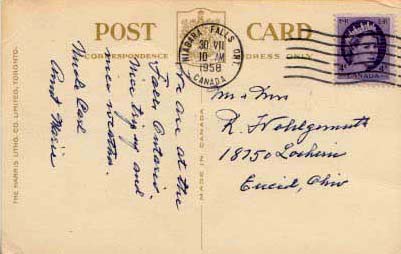 POST CARD
CORRESPONDENCE
ADDRESS ONLY
NIAGARA FALLS ONT
30 VII
10 AM
1958
CANADA
CANADA
We are at the
Falls Ontario.
Nice trip and
nice weather.
Uncle Carl
Aunt Marie
Mr & Mrs
R. Wohlgemuth
18750 Lochern
Euclid, Ohio
MADE IN CANADA
THE HARRIS LITHO. CO. LIMITED, TORONTO.